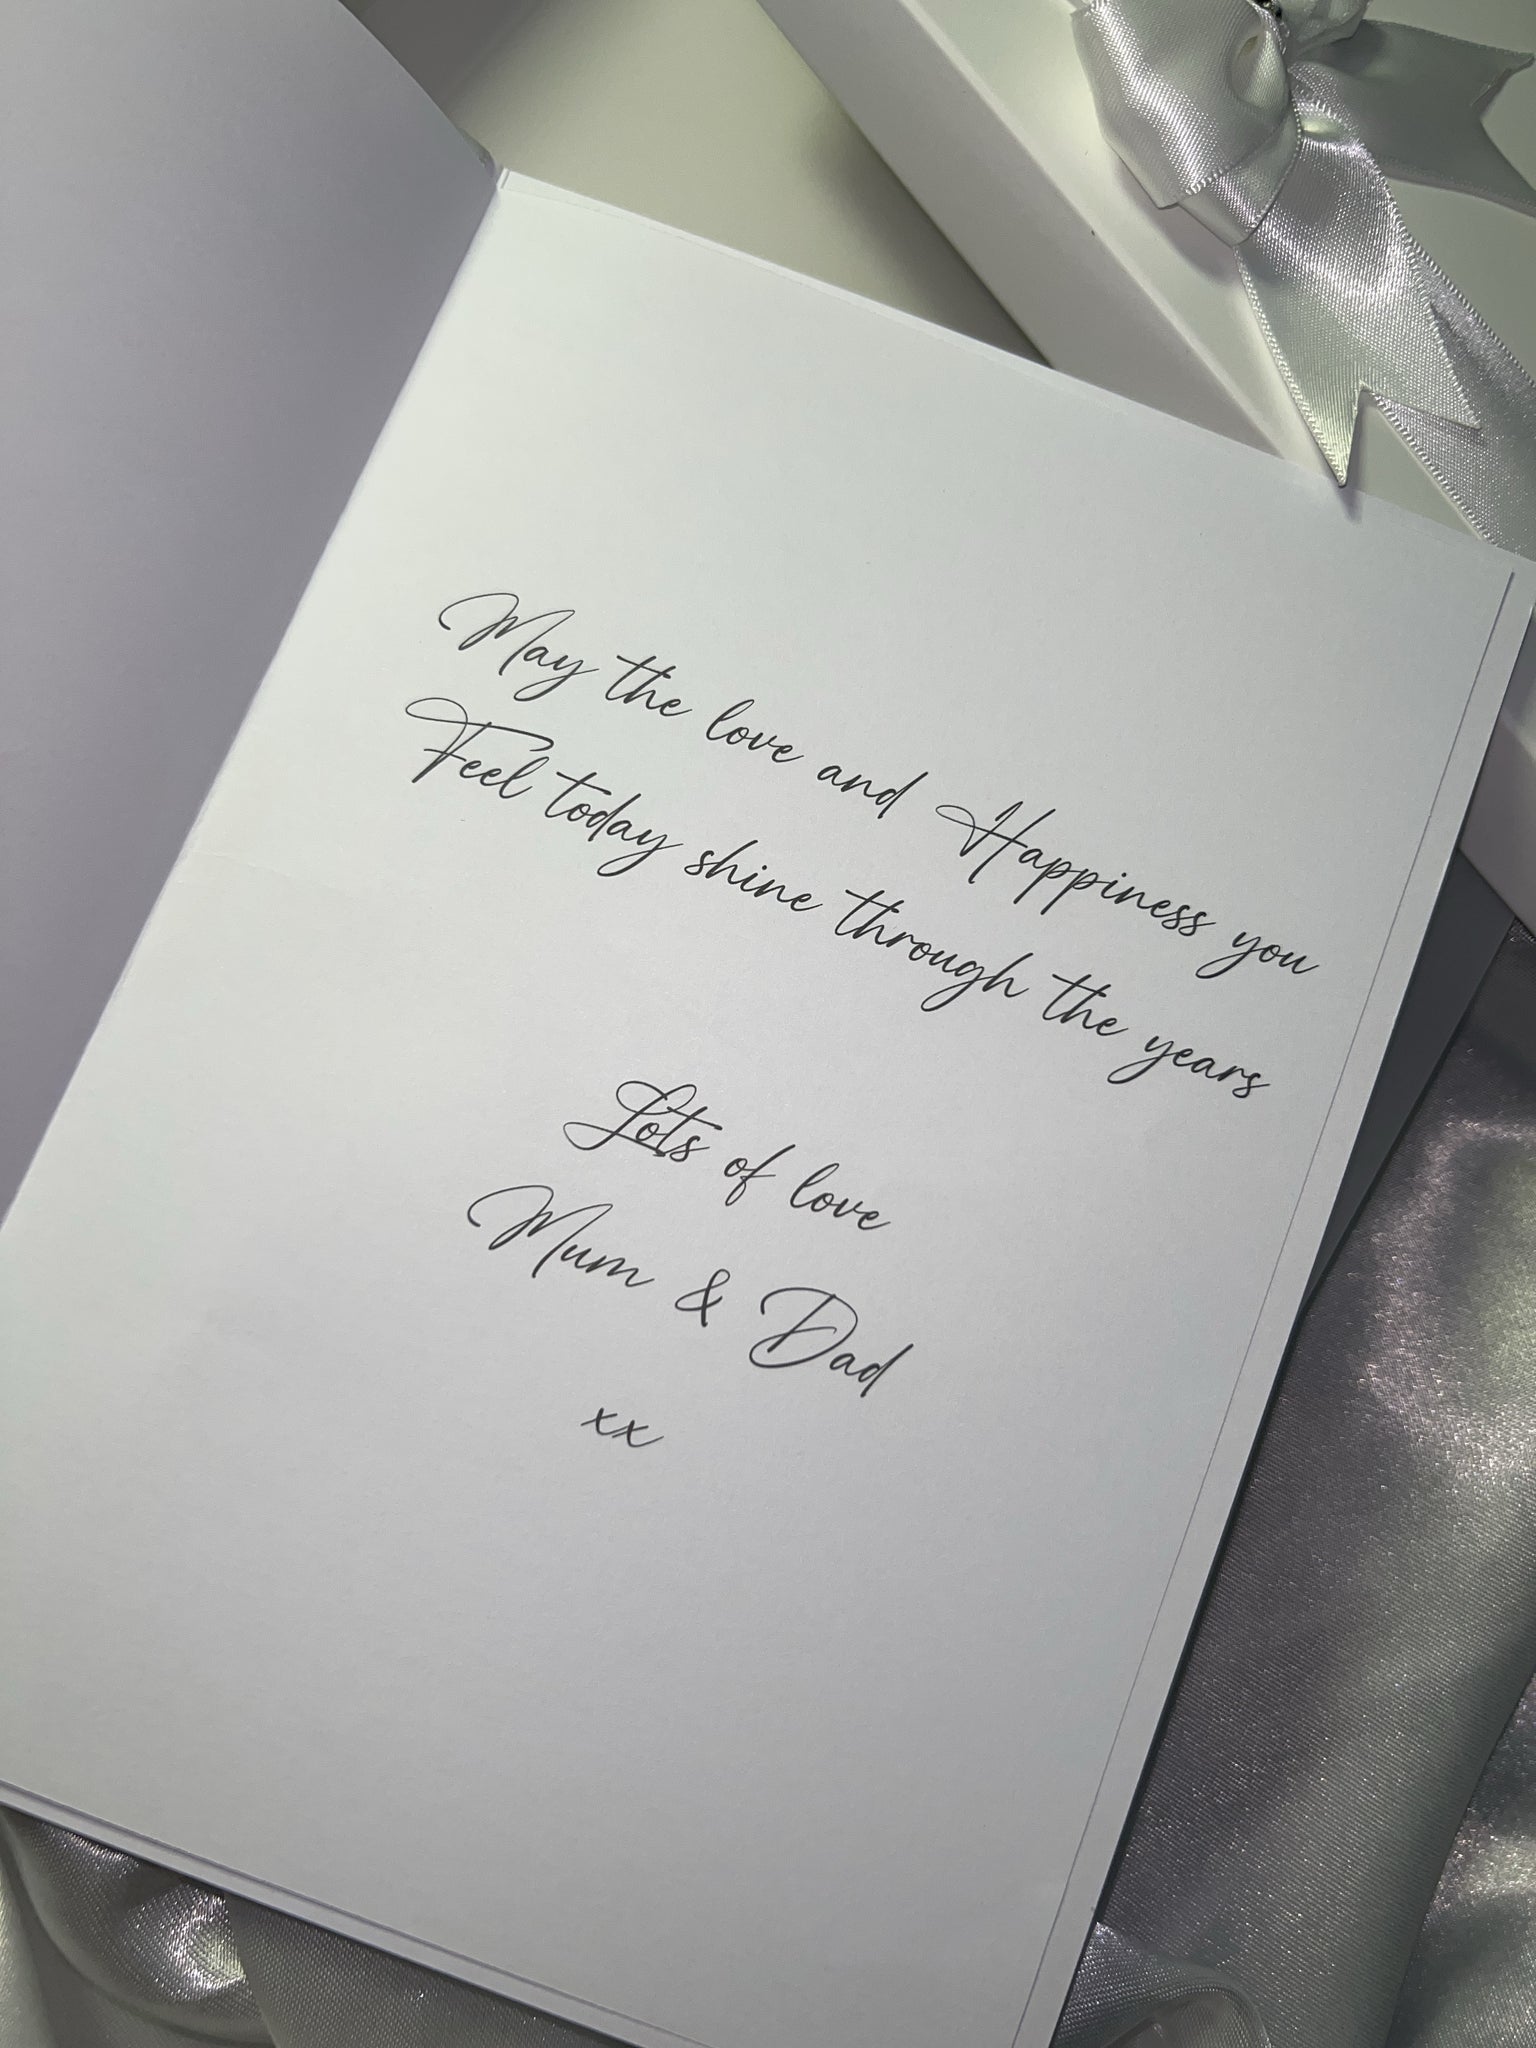 May the love and Happiness you
Feel today shine through the years
Lots of love
Mum & Dad
xx